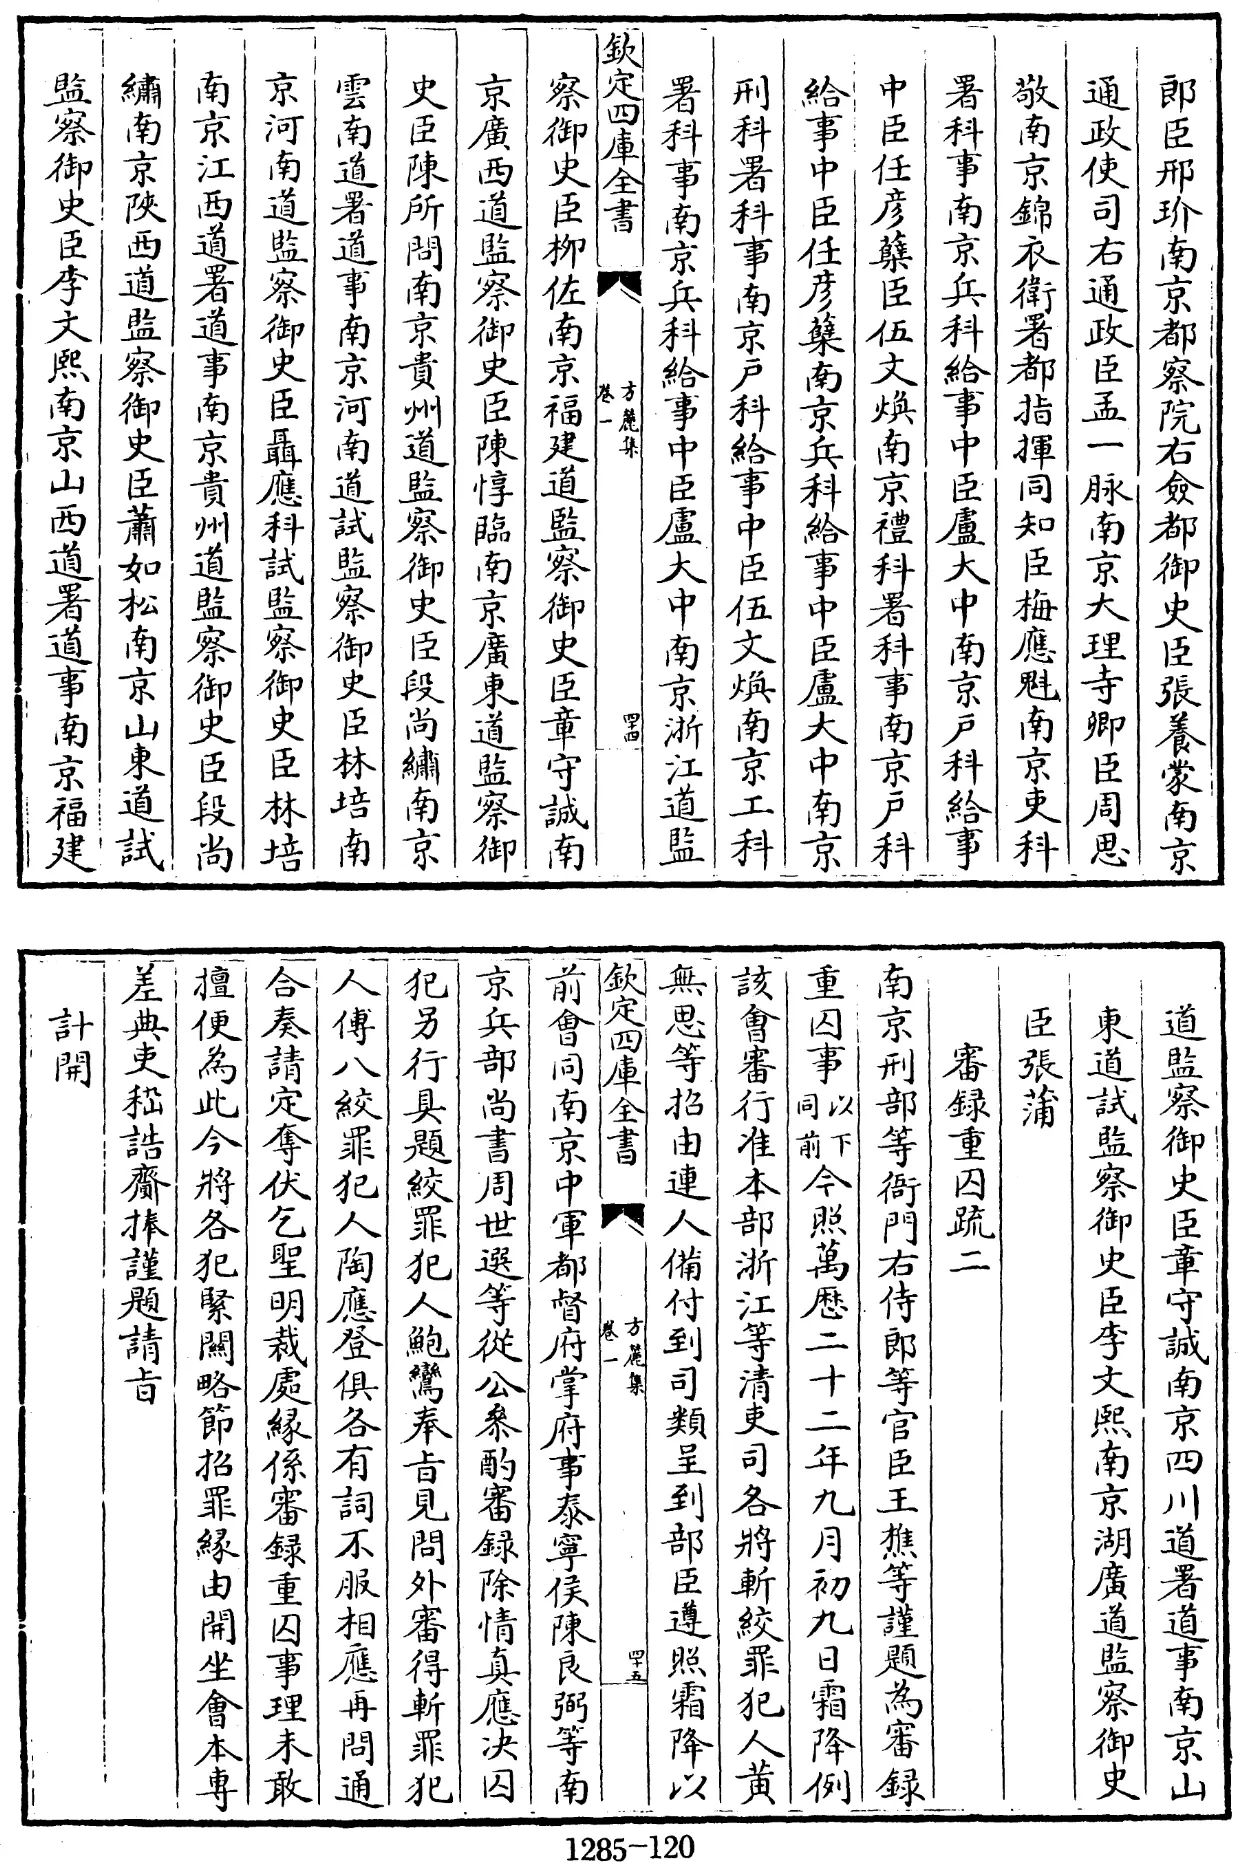 郎臣邢玠南京都察院右僉都御史臣張養蒙南京
通政使司右通政臣孟一脉南京大理寺卿臣周思
敬南京錦衣衛署都指揮同知臣梅應魁南京吏科
署科事南京兵科給事中臣盧大中南京戸科給事
中臣任彦蘖臣伍文焕南京禮科署科事南京戸科
給事中臣任彦蘖南京兵科給事中臣盧大中南京
刑科署科事南京戸科給事中臣伍文焕南京工科
署科事南京兵科給事中臣盧大中南京浙江道監
欽定四庫全書
方麓集
卷一
四十四
察御史臣柳佐南京福建道監察御史臣章守誠南
京廣西道監察御史臣陳惇臨南京廣東道監察御
史臣陳所問南京貴州道監察御史臣段尚繡南京
雲南道署道事南京河南道試監察御史臣林培南
京河南道監察御史臣聶應科試監察御史臣林培
南京江西道署道事南京貴州道監察御史臣段尚
繡南京陜西道監察御史臣蕭如松南京山東道試
監察御史臣李文熙南京山西道署道事南京福建
道監察御史臣章守誠南京四川道署道事南京山
東道試監察御史臣李文熙南京湖廣道監察御史
臣張蒲
審録重囚疏二
南京刑部等衙門右侍郎等官臣王樵等謹題為審録
重囚事以下同前今照萬歴二十二年九月初九日霜降例
該會審行准本部浙江等清吏司各將斬絞罪犯人黄
無思等招由連人備付到司類呈到部臣遵照霜降以
欽定四庫全書
方麓集
卷一
四十五
前會同南京中軍都督府掌府事泰寧侯陳良弼等南
京兵部尚書周世選等從公叅酌審録除情真應决囚
犯另行具題絞罪犯人鮑鸞奉旨見問外審得斬罪犯
人傅八絞罪犯人陶應登俱各有詞不服相應再問通
合奏請定奪伏乞聖明裁處縁係審録重囚事理未敢
擅便為此今將各犯緊關略節招罪緣由開坐會本專
差典吏嵇誥齎捧謹題請旨
計開
1285-120